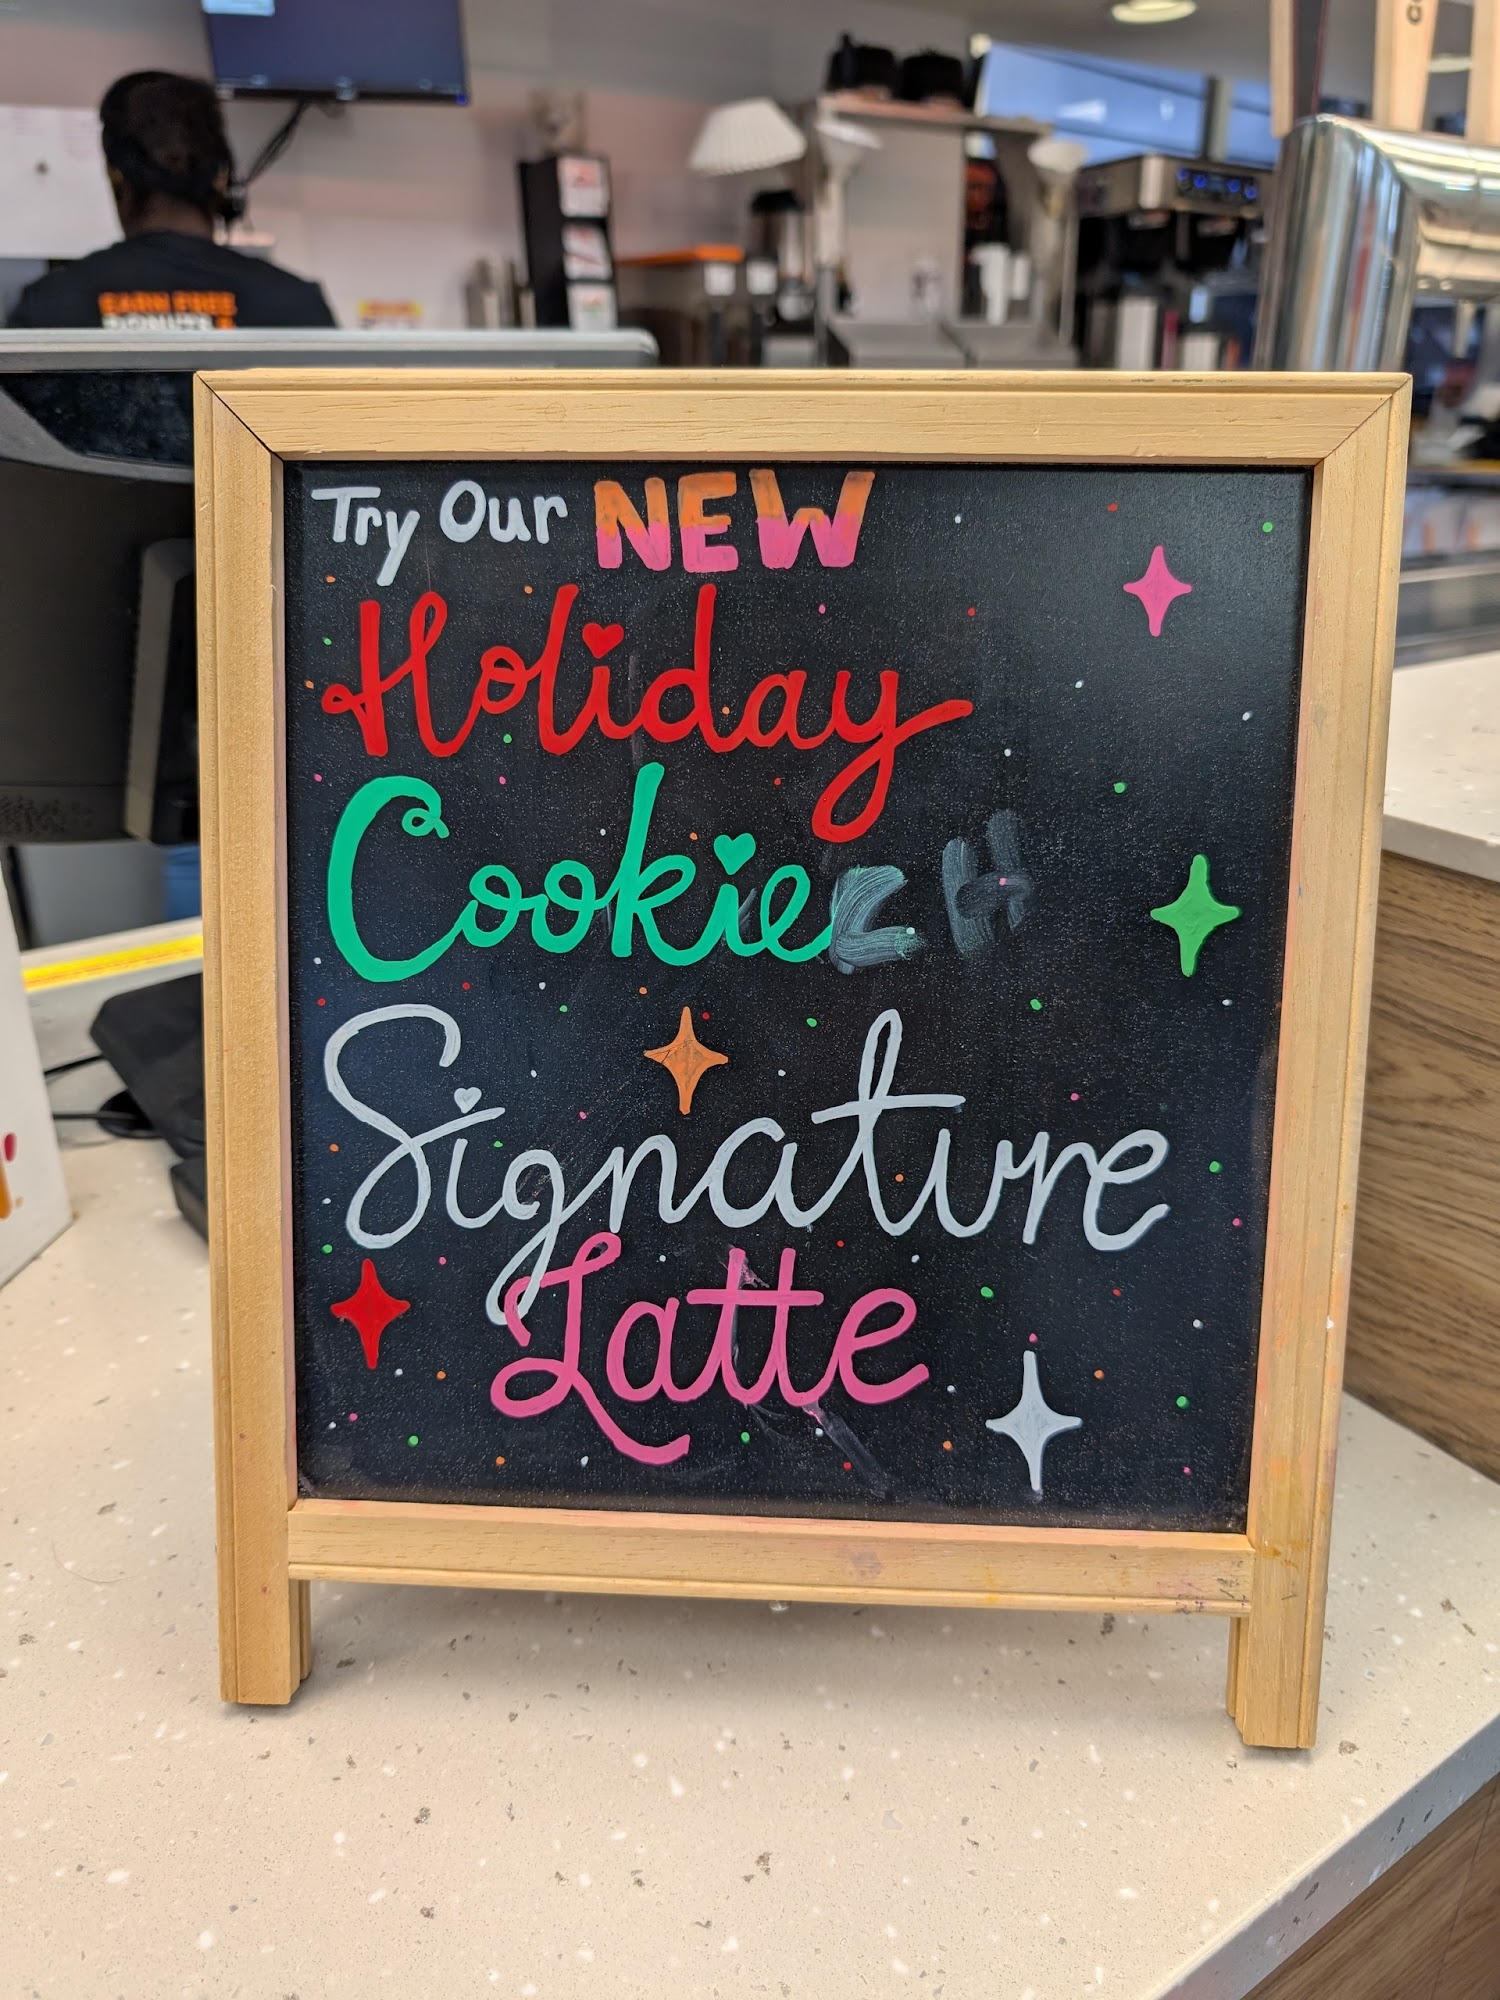 EARN FREE
DONUTS
Try Our NEW
Holiday
Cookie
Signature
Latte